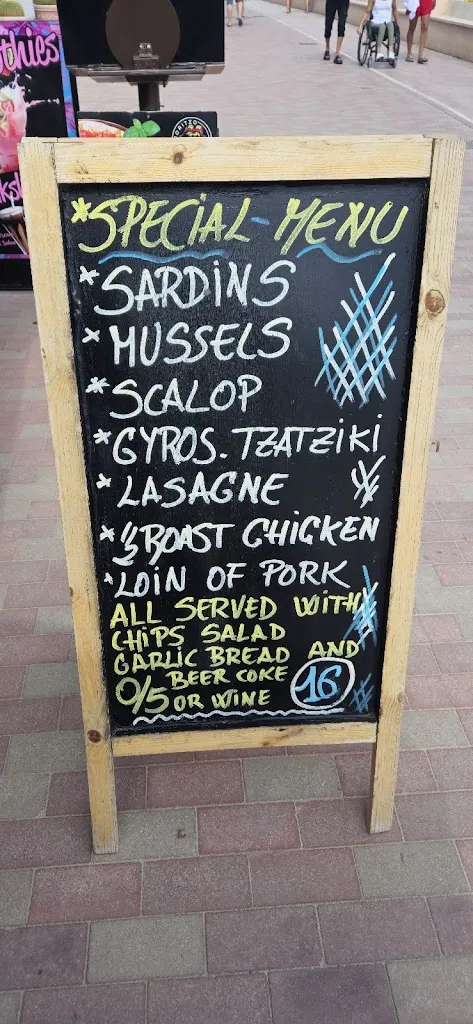 thies
*SPECIAL-MENU
*SARDINS
*MUSSELS
*SCALOP
*GYROS. TZATZIKI
*LASAGNE
*½ ROAST CHICKEN
*LOIN OF PORK
ALL SERVED WITH
CHIPS SALAD
GARLIC BREAD AND
BEER COKE
0/5 OR WINE 16